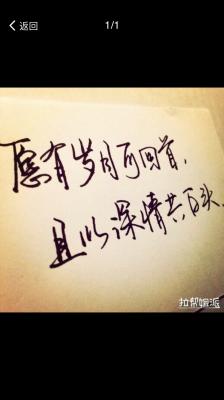 返回
1/1
愿有岁月可回首,
且以深情共白头.
拉帮姻派